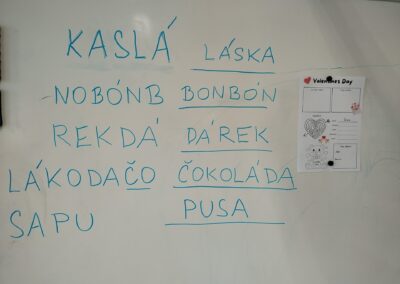 KASLÁ LÁSKA
NOBÓNB BONBÓN
REKDÁ DÁREK
LÁKODAČO ČOKOLÁDA
SAPU PUSA
Valentines Day